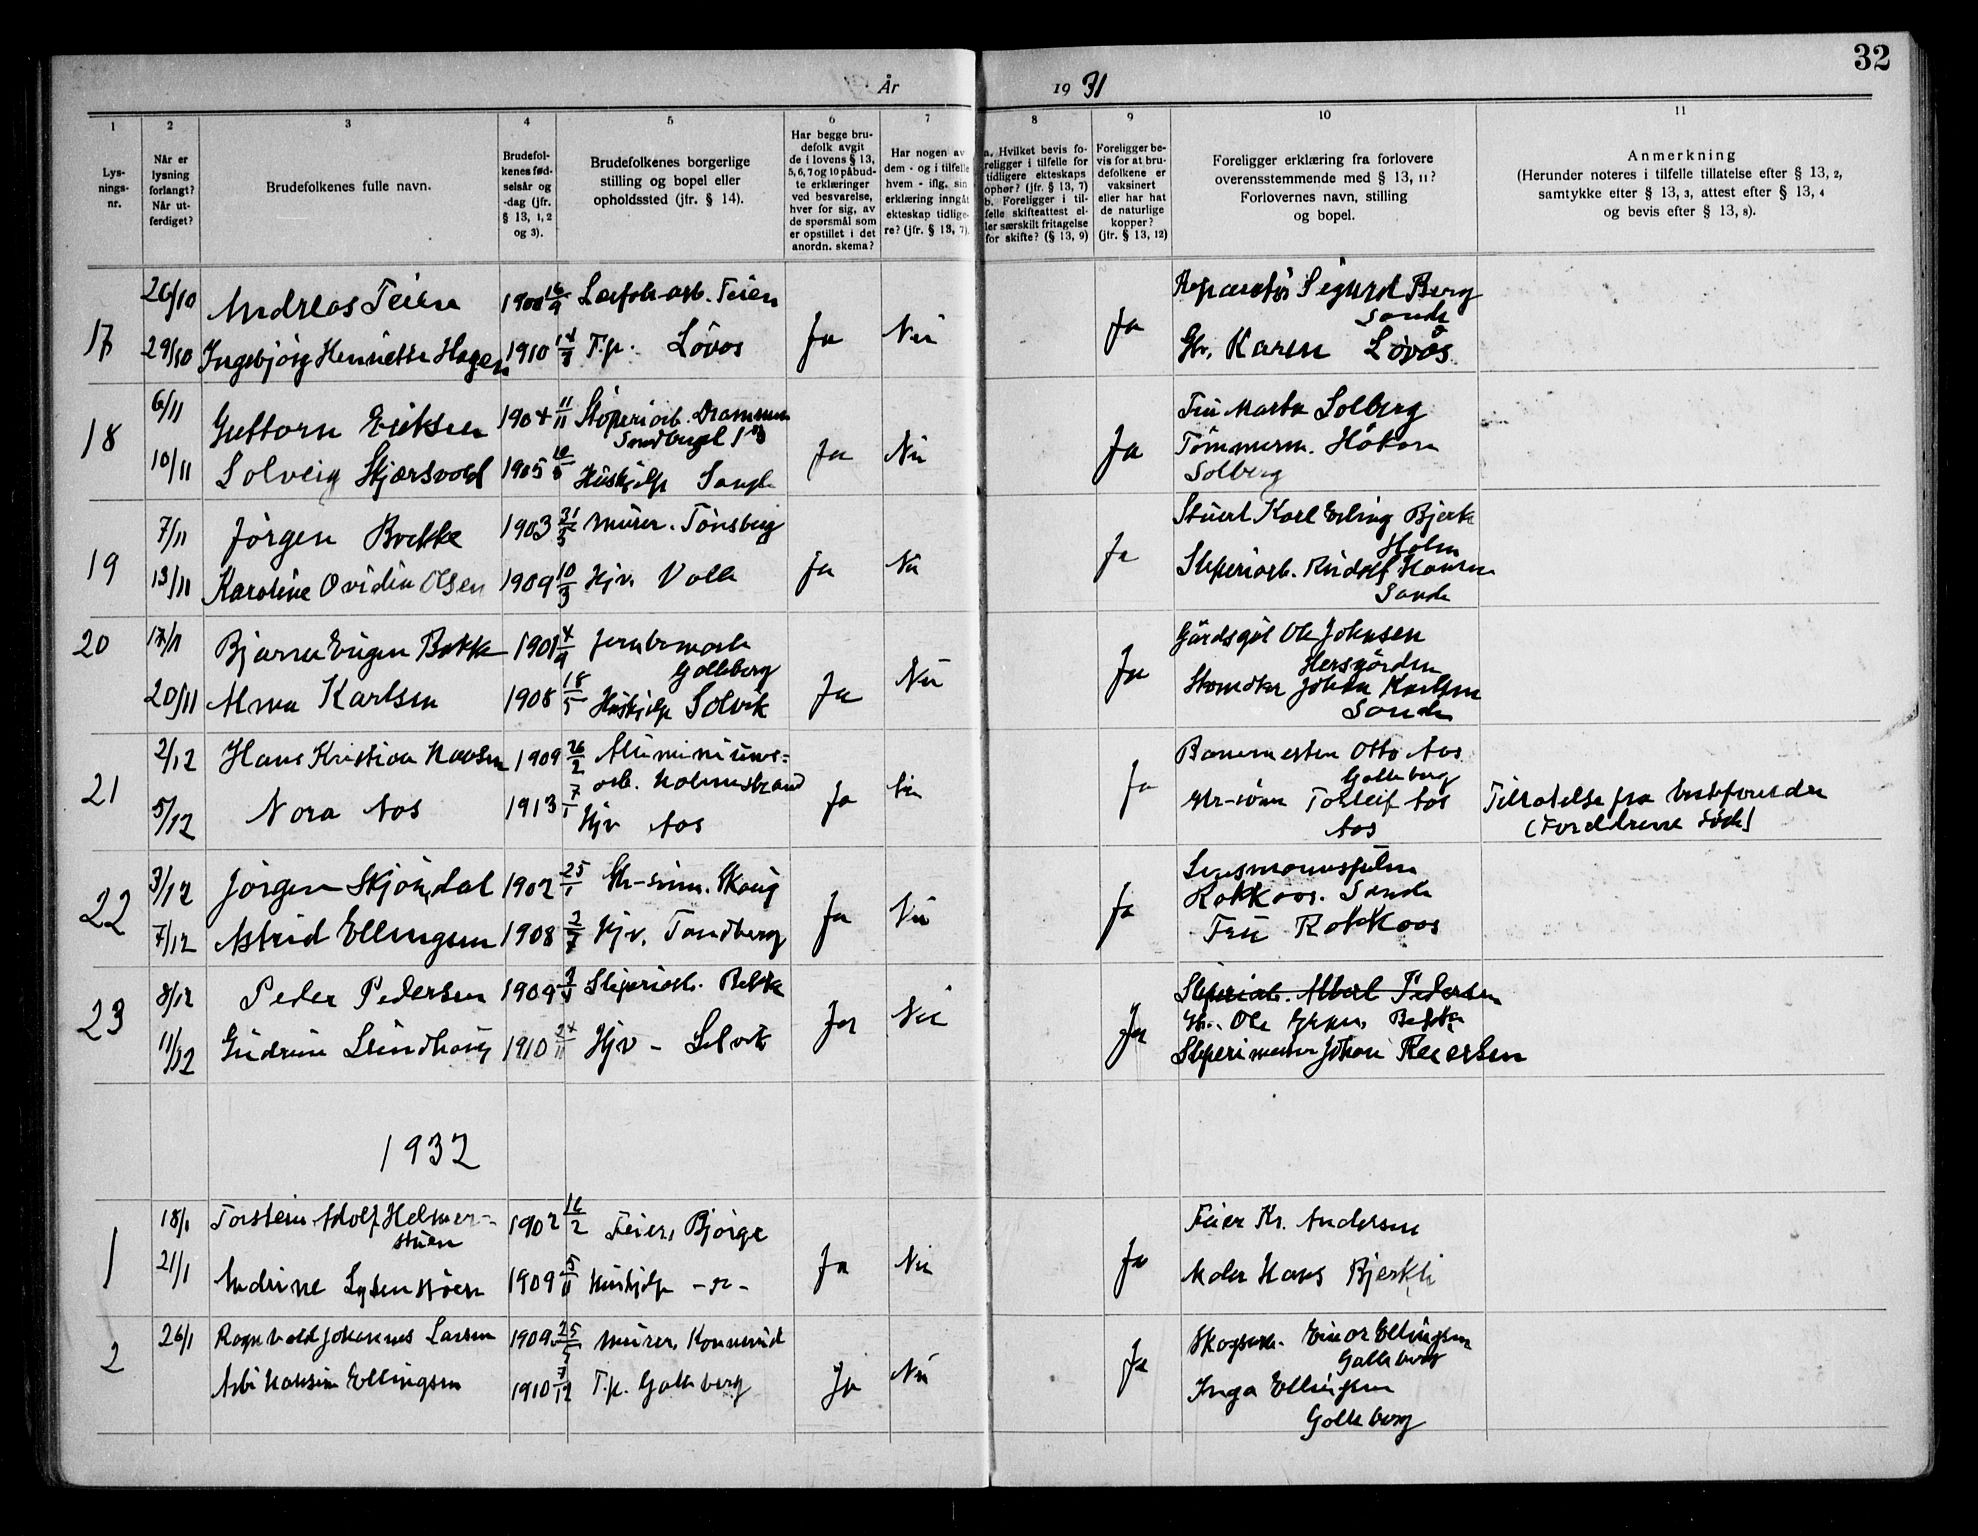 32
År 1931
1 2 3 4 5 6 7 8 9 10 11
Lysningsnr.
Når er lysning forlangt? Når utferdiget?
Brudefolkenes fulle navn.
Brudefolkenes fødselsår og -dag (jfr. § 13, 1, 2 og 3).
Brudefolkenes borgerlige stilling og bopel eller opholdssted (jfr. § 14).
Har begge brudefolk avgit de i lovens § 13, 5, 6, 7 og 10 påbudte erklæringer ved besvarelse, hver for sig, av de spørsmål som er opstillet i det anordn. skema?
Har nogen av dem - og i tilfelle hvem - iflg. sin erklæring inngått ekteskap tidligere? (jfr. § 13, 7).
a. Hvilket bevis foreligger i tilfelle for tidligere ekteskaps ophør? (jfr. § 13, 7) b. Foreligger i tilfelle skifteattest eller særskilt fritagelse for skifte? (§ 13, 9)
Foreligger bevis for at brudefolkene er vaksinert eller har hat de naturlige kopper? (jfr. § 13, 12)
Foreligger erklæring fra forlovere overensstemmende med § 13, 11? Forlovernes navn, stilling og bopel.
Anmerkning
(Herunder noteres i tilfelle tillatelse efter § 13, 2, samtykke efter § 13, 3, attest efter § 13, 4 og bevis efter § 13, 8).
17 26/10 Andreas Teien 1900 16/9 Teien Ja Nei Ja Reparatør Sigurd Berg
Sande
29/10 Ingebjørg Henriette Hagen 1910 14/9 T.p. Løvås Gbr. Karen Løvås
18 6/11 Guttorm Eriksen 1904 11/11 Sliperiarb. Drammen
Ja Nei Ja Fru Marta Solberg
10/11 Solveig Skjærsvold 1905 Hushjelp Sande Tømmerm. Håkon
Solberg
19 7/11 Jørgen Bække 1903 31/5 Murer. Tønsberg Ja Nei Ja Stuert Karl Erling Bjerk
Holm
13/11 Karoline Ovidia Olsen 1909 10/3 Hjv. Valle Sliperiarb. Rudolf Hansen
Sande
20 17/11 Bjarne Eugen Bekk 1901 4/9
Galleberg Ja Nei Ja Gårdsgut Ole Johnsen
Hersgården
20/11 Alma Karlsen 1908 18/5 Hushjelp Selvik Johan Karlsen
Sande
21 2/12 Hans Kristian Hansen 1909 26/2 Aluminiums-
arb. Holmestrand Ja Nei Ja Banemester Otto Aas
Galleberg
5/12 Nora Aas 1913 7/1 Hjv Aas Gbr-sønn Torleif Aas
Aas
Tillatelse fra besteforeldre
(Foreldrene døde)
22 3/12 Jørgen Skjøndal 1902 25/1 Gbr-sønn. Skaug Ja Nei Ja Lensmannsfullm
Rokkaas. Sande
7/12 Astrid Ellingsen 1908 2/7 Hjv. Tandberg Fru Rokkaas
23 8/12 Peder Pedersen 1909 Sliperiarb. Bekk Ja Nei Ja Sliperiarb. Albert Pedersen
Gbr. Ole Bekk
11/12 Gudrun Lindhaug 1910 24/11 Hjv - Selvik Sliperimester Johan Reiersen
1932
1 18/1 Torstein Adolf Helmer-
stuen 1902 16/2 Feier, Bjørge Ja Nei Ja Feier Kr. Andersen
21/1 Andrine Lysenstøen 1909 5/11 Hushjelp - " - Maler Hans Bjerkli
2 26/1 Ragnvald Johannes Larsen 1909 25/5 Murer, Konnerud Ja Nei Ja Skogsarb. Einar Ellingsen
Galleberg
Ellingsen 1910 7/12 T.p. Galleberg Inga Ellingsen
Galleberg